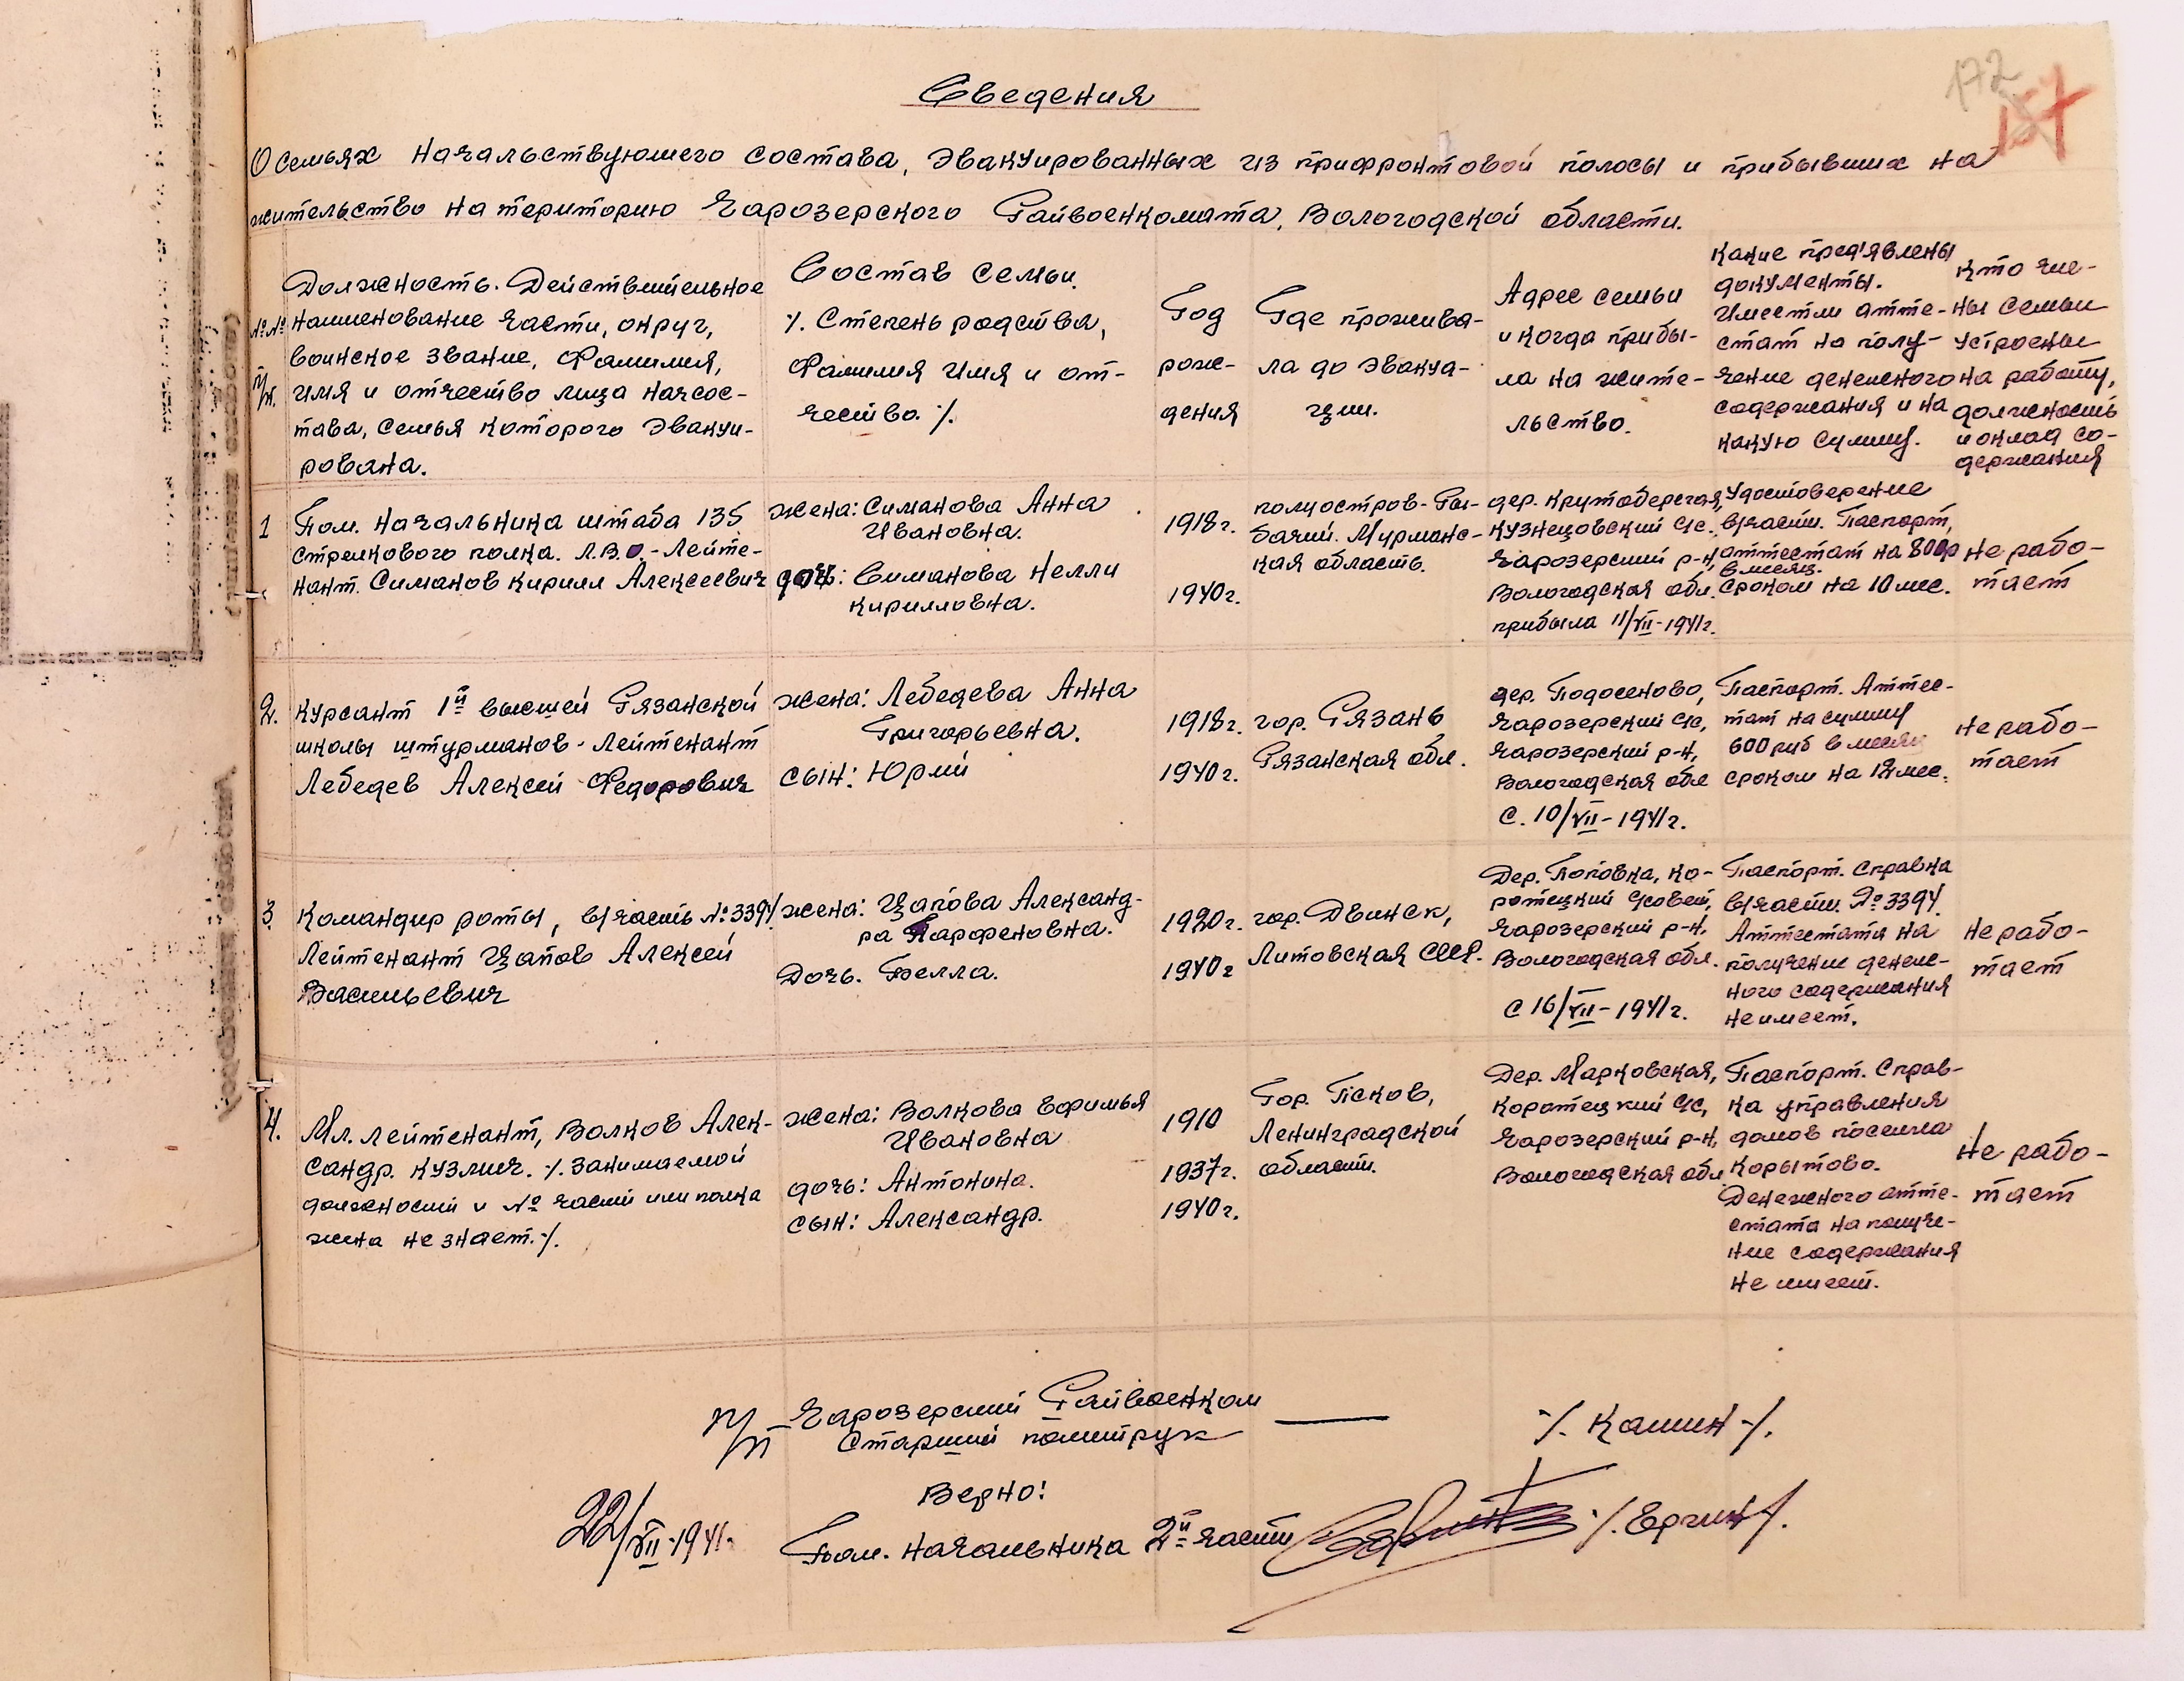 172
157
Сведения
О семьях начальствующего состава, эвакуированных из прифронтовой полосы и прибывших на
жительство на територию Чарозерского Райвоенкомата, Вологодской области.
№№
п/п.
Должность. Действительное
наименование части, округ,
воинское звание, Фамилия,
имя и отчество лица начсос-
тава, семья которого эвакуи-
рована.
Состав семьи.
·/. Степень родства,
Фамилия Имя и от-
чество. ·/.
Год
рож-
дения
Где прожива-
ла до эвакуа-
ции.
Адрес семьи
и когда прибы-
ла на жите-
льство.
Какие пред'явлены
документы.
Имеет ли атте-
стат на полу-
чение денежного
содержания и на
какую сумму.
Кто чле-
ны семьи
устроены
на работу,
должность
и оклад со-
держания
1
Пом. Начальника штаба 135
стрелкового полка. Л.В.О.-Лейте-
нант. Симанов Кирилл Алексеевич
жена: Симанова Анна
Ивановна.
дочь: Симанова Нелли
Кирилловна.
1918г.
1940г.
полуостров-Ры-
бачий. Мурманс-
кая область.
дер. Крутоберегая,
Кузнецовский с/с.
Чарозерский р-н,
Вологодская обл.
прибыла 11/VII-1941г.
Удостоверение
в/части. Паспорт,
аттестат на 800р
в месяц.
сроком на 10 мес.
Не рабо-
тает
2.
Курсант 1й высшей Рязанской
школы штурманов-Лейтенант
Лебедев Алексей Федорович
жена: Лебедева Анна
Григорьевна.
сын: Юрий
1918г.
1940г.
гор. Рязань
Рязанская обл.
дер. Подосеново,
Чарозерский с/с,
Чарозерский р-н,
Вологодская обл
с. 10/VII-1941г.
Паспорт. Аттес-
тат на сумму
600 руб в месяц
сроком на 12 мес.
не рабо-
тает
3.
Командир роты, в/часть №3394.
Лейтенант Цапов Алексей
Васильевич
жена: Цапова Александ-
ра Парфеновна.
Дочь. Белла.
1920г.
1940г
гор. Двинск,
Литовская ССР.
Дер. Поповка, Ко-
ротецкий с/совет,
Чарозерский р-н,
Вологодская обл.
с 16/VII-1941г.
Паспорт. Справка
в/части. №3394.
Аттестата на
получение денеж-
ного содержания
не имеет.
не рабо-
тает
4.
Мл. лейтенант, Волков Алек-
сандр. Кузмич. ·/. занимаемой
должности и № части или полка
жена не знает.·/.
жена: Волкова Ефимья
Ивановна
дочь: Антонина.
сын: Александр.
1910
1937г.
1940г.
Гор. Псков,
Ленинградской
области.
Дер. Марковская,
Коротецкий с/с,
Чарозерский р-н,
Вологодская обл
Паспорт. Справ-
ка управления
домов поселка
Корытово.
Денежного атте-
стата на получе-
ние содержания
не имеет.
Не рабо-
тает
п/п Чарозерский Райвоенком
Старший политрук
·/. Кашин ·/.
Верно:
22/VII-1941г.
Пом. Начальника 2й части
·/. Ергин ·/.